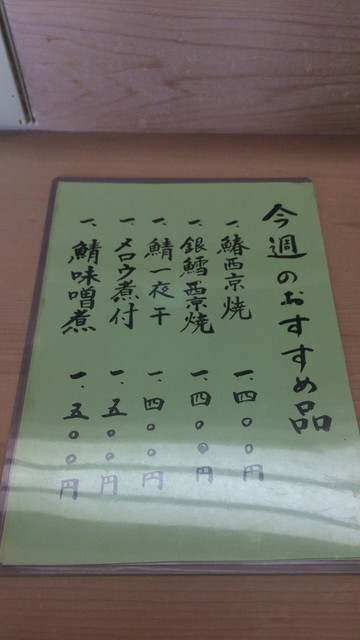 今週のおすすめ品
一、鰆西京焼 一、四〇〇円
一、銀鱈西京焼 一、四〇〇円
一、鯖一夜干 一、四〇〇円
一、メロウ煮付 一、五〇〇円
一、鯖味噌煮 一、五〇〇円